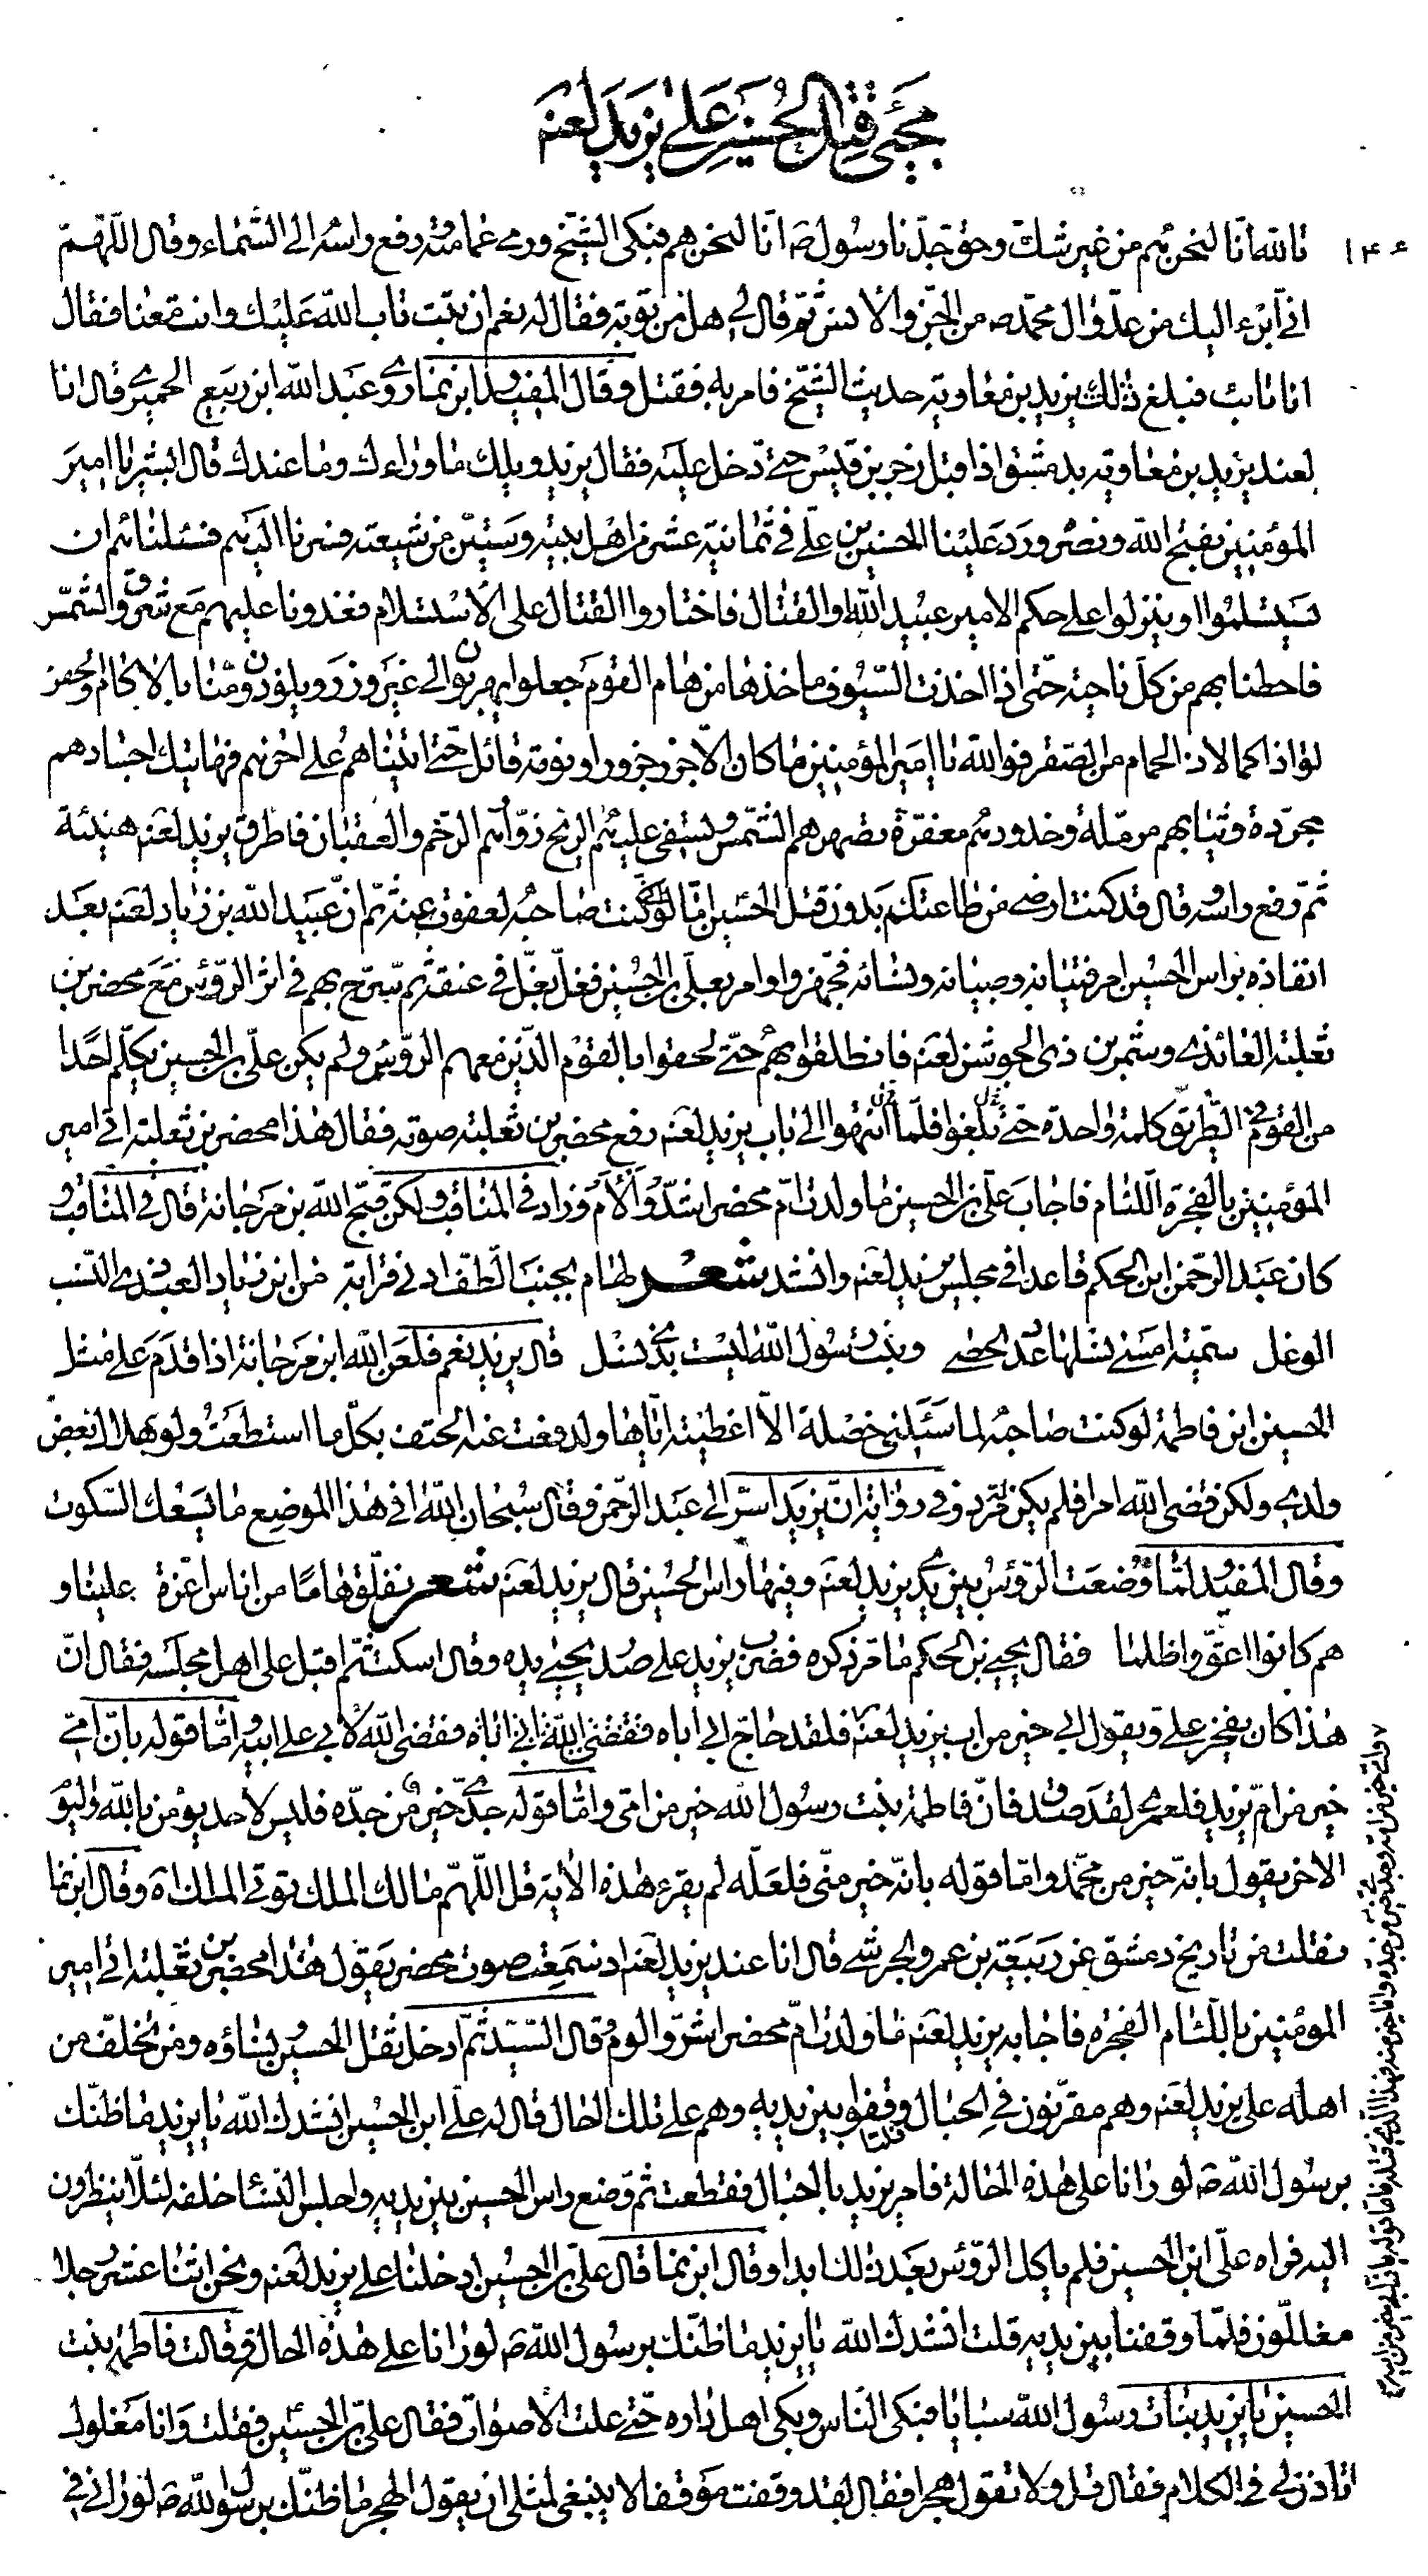 مجيئ ثقل الحسين على يزيد لعنه
١٤٠
تالله انا لنحن هم من غير شك وحق جدنا رسول الله ص انا لنحن هم فبكى الشيخ ورمى عمامته ورفع راسه الى السماء وقال اللهم
انى ابرء اليك من عدو ال محمد ص من الجن والانس ثم قال لى هل من توبة فقال له نعم ان تبت تاب الله عليك وانت معنا فقال
انا تائب فبلغ ذلك يزيد بن معاوية حديث الشيخ فامر به فقتل وقال المفيد وابن نما روى عبد الله ابن ربيع الحميرى قال انا
لعند يزيد بن معاوية بدمشق اذا قبل زحر بن قيس حتى دخل عليه فقال يزيد ويلك ما وراءك وما عندك قال ابشر يا امير
المؤمنين بفتح الله ونصره ورد علينا الحسين بن على فى ثمانية عشر من اهل بيته وستين من شيعته فسرنا اليهم فسئلناهم ان
يستسلموا او ينزلوا على حكم الامير عبيد الله او القتال فاختاروا القتال على الاستسلام فغدونا عليهم مع شروق الشمس
فاحطنا بهم من كل ناحية حتى اذا اخذت السيوف ماخذها من هام القوم جعلوا يهربون الى غير وزر ويلوذون منا بالاكام والحفر
لواذا كما لاذ الحمام من الصقر فوالله يا امير المؤمنين ما كان الا جزر جزور او نومة قائل حتى اتينا هم على اخرهم فهاتيك اجسادهم
مجردة وثيابهم مرملة وخدودهم معفرة تصهرهم الشمس وتسفى عليهم الريح زوارهم الرخم والعقبان فاطرق يزيد لعنه هنيئة
ثم رفع راسه وقال قد كنت ارضى من طاعتكم بدون قتل الحسين اما لو كنت صاحبه لعفوت عنه ثم ان عبيد الله بن زياد لعنه بعد
انفاذه براس الحسين امر فتيانه وصبيانه ونسائه فجهزوا وامر بعلى بن الحسين فغل بغل فى عنقه ثم سرح بهم فى اثر الرؤس مع محضر بن
ثعلبة العائذى وشمر بن ذى الجوشن لعنه فانطلقوا بهم حتى لحقوا بالقوم الذين معهم الرؤس ولم يكن على بن الحسين يكلم احدا
من القوم فى الطريق كلمة واحدة حتى بلغوا فلما انتهوا الى باب يزيد لعنه رفع محضر بن ثعلبة صوته فقال هذا محضر بن ثعلبة اتى امير
المؤمنين بالفجرة اللئام فاجاب على بن الحسين ما ولدت ام محضر اشد والام وزاد فى المناقب ولكن قبح الله بن مرجانة قال فى المناقب و
كان عبد الرحمن ابن الحكم قاعدا فى مجلس يزيد لعنه وانشد شعر لهام بجنب الطف ادنى قرابة من ابن زياد العبد ذى النسب
الوغل سمية امسى نسلها عدد الحصى وبنت رسول الله ليست بذى نسل قال يزيد نعم فلعن الله ابن مرجانة اذا قدم على مثل
الحسين ابن فاطمة لو كنت صاحبه لما سئلنى خصلة الا اعطيته اياها ولدفعت عنه الحتف بكل ما استطعت ولو بهلاك بعض
ولدى ولكن قضى الله امرا فلم يكن له مرد وفى رواية ان يزيد اسر الى عبد الرحمن وقال سبحان الله افى هذا الموضع ما يسعك السكوت
وقال المفيد لما وضعت الرؤس بين يدى يزيد لعنه وفيها راس الحسين قال يزيد لعنه شعر نفلق هاما من اناس اعزة علينا و
هم كانوا اعق واظلما فقال يحيى بن الحكم ما مر ذكره فضرب يزيد على صدر يحيى بيده وقال اسكت ثم اقبل على اهل مجلسه فقال ان
هذا كان يفخر على ويقول ابى خير من اب يزيد لعنه فلقد حاج ابى اباه فقضى الله لابى على ابيه واما قوله بان امى
خير من ام يزيد فلعمرى لقد صدق فان فاطمة بنت رسول الله خير من امى واما قوله جدى خير من جده فليس لاحد يؤمن بالله واليوم
الاخر يقول بانه خير من محمد واما قوله بانه خير منى فلعله لم يقرء هذه الاية قل اللهم مالك الملك تؤتى الملك اه وقال ابن نما
نقلت من تاريخ دمشق عن ربيعة بن عمرو الجرشى قال انا عند يزيد لعنه اذ سمعت صوت محضر يقول هذا محضر بن ثعلبة اتى امير
المؤمنين باللئام الفجرة فاجابه يزيد لعنه ما ولدت ام محضر اشر والوم وقال السيد ثم ادخل ثقل الحسين ونساؤه ومن تخلف من
اهله على يزيد لعنه وهم مقرنون فى الحبال فلما وقفوا بين يديه وهم على تلك الحال قال له على ابن الحسين انشدك الله يا يزيد ما ظنك
برسول الله ص لو رانا على هذه الحالة فامر يزيد بالحبال فقطعت ثم وضع راس الحسين بين يديه واجلس النساء خلفه لئلا ينظرون
اليه فراه على ابن الحسين فلم ياكل الرؤس بعد ذلك ابدا وقال ابن نما قال على بن الحسين ادخلنا على يزيد لعنه ونحن اثنا عشر رجلا
مغللون فلما وقفنا بين يديه قلت انشدك الله يا يزيد ما ظنك برسول الله ص لو رانا على هذه الحال وقالت فاطمة بنت
الحسين يا يزيد بنات رسول الله سبايا فبكى الناس وبكى اهل داره حتى علت الاصوات فقال على بن الحسين فقلت وانا مغلول
اتاذن لى فى الكلام فقال قل ولا تقول هجرا فقال لقد وقفت موقفا لا ينبغى لمثلى ان يقول الهجر ما ظنك برسول الله ص لو رانى فى
وامى خير من امه وجدى خير من جده وانا خير منه فهذا الذى قتله فاما قوله بان ابى خير من اب يزيد